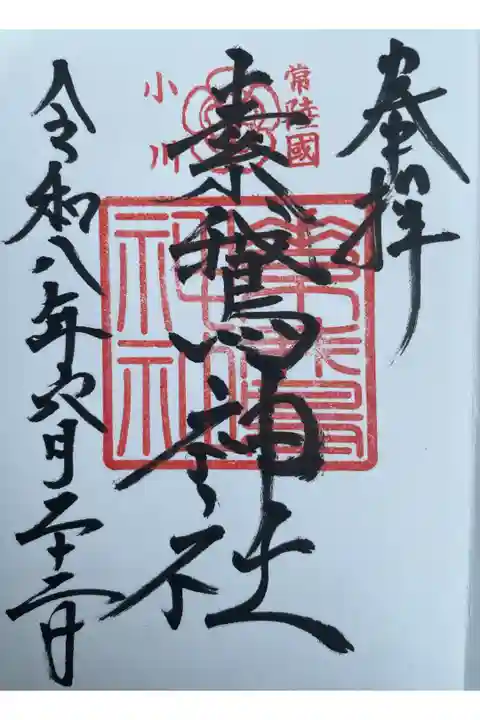 奉拝
常陸國
小川
素鵞神社
令和八年六月二十二日